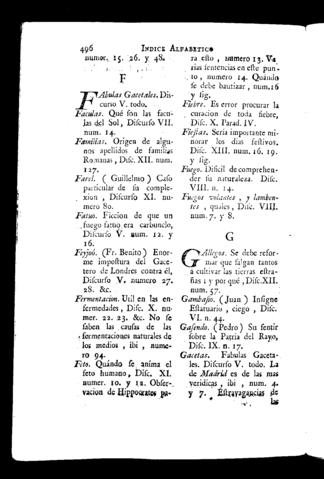 496 INDICE ALFABETICO
numor. 15. 26. y 48.
F
FAbulas Gacetales. Dis-
curso V. todo.
Faculas. Qué son las facu-
las del Sol, Discurso VII.
num. 14.
Familias. Origen de algu-
nos apellidos de familias
Romanas, Disc. XII. num.
127.
Farel. ( Guillelmo ) Caso
particular de su comple-
xion, Discurso XI. nu-
mero 80.
Fatuo. Ficcion de que un
fuego fatuo era carbunclo,
Discurso V. num. 12. y
16.
Feyjoó. (Fr. Benito) Enor-
me impostura del Gace-
tero de Londres contra él,
Discurso V. numero 27.
28. &c.
Fermentacion. Util en las en-
fermedades, Disc. X. nu-
mer. 22. 23. &c. No se
saben las causas de las
fermentaciones naturales de
los medios, ibi, nume-
ro 94.
Feto. Quándo se anima el
feto humano, Disc. XI.
numer. 10. y 12. Obser-
vacion de Hippocrates pa-
ra esto, numero 13. Va-
rias sentencias en este pun-
to, numero 14. Quándo
se debe bautizar, num. 16
y sig.
Fiebre. Es error procurar la
curacion de toda fiebre,
Disc. X. Parad. IV.
Fiestas. Sería importante mi-
norar los dias festivos.
Disc. XIII. num. 16. 19.
y sig.
Fuego. Dificil de comprehen-
der su naturaleza. Disc.
VIII. n. 14.
Fuegos volantes, y lamben-
tes, quales, Disc. VIII.
num. 7. y 8.
G
GAllegos. Se debe refor-
mar que salgan tantos
a cultivar las tierras estra-
ñas ; y por qué, Disc. XII.
num. 57.
Gambaso. ( Juan ) Insigne
Estatuario, ciego, Disc.
VI. n. 44.
Gasendo. ( Pedro ) Su sentir
sobre la Patria del Rayo,
Disc. IX. n. 17.
Gacetas. Fabulas Gaceta-
les. Discurso V. todo. La
de Madrid es de las mas
veridicas, ibi, num. 4.
y 7. Estravagancias de
las